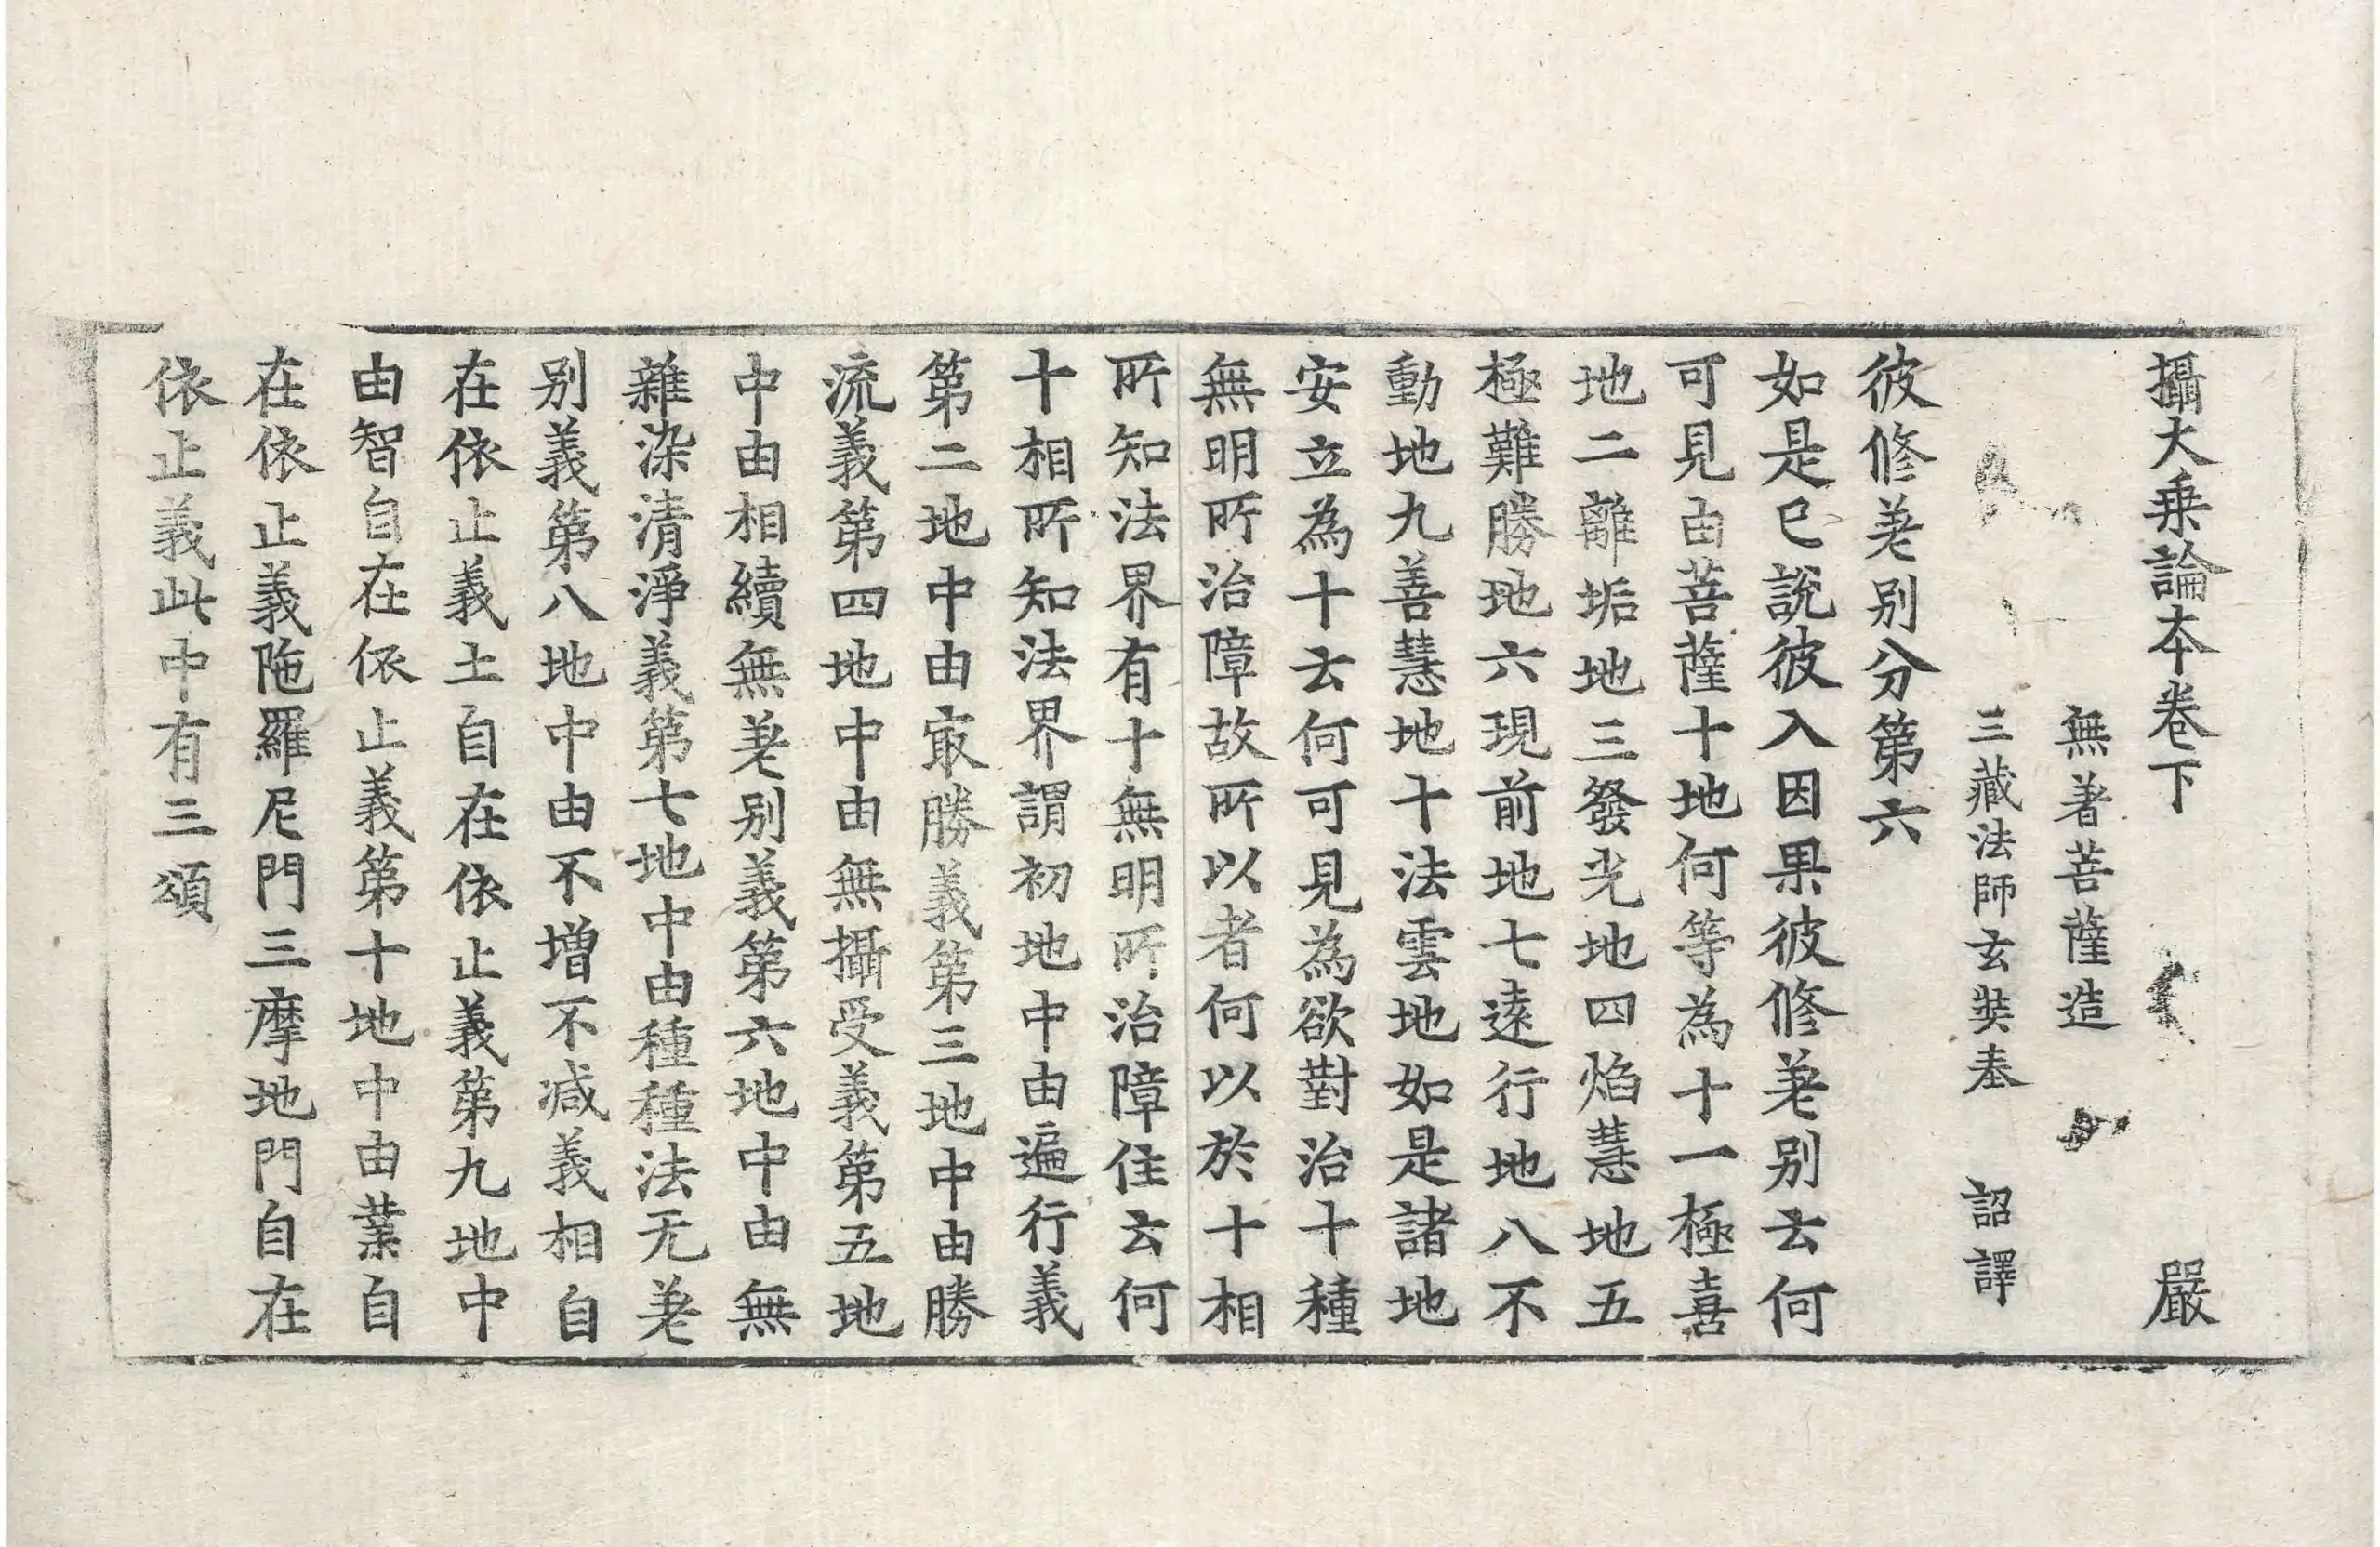 攝大乗論本卷下 嚴
無著菩薩造
三藏法師玄奘奉 詔譯
彼修差別分第六
如是已說彼入因果彼修差別云何
可見由菩薩十地何等為十一極喜
地二離垢地三發光地四焰慧地五
極難勝地六現前地七遠行地八不
動地九善慧地十法雲地如是諸地
安立為十云何可見為欲對治十種
無明所治障故所以者何以於十相
所知法界有十無明所治障住云何
十相所知法界謂初地中由遍行義
第二地中由㝡勝義第三地中由勝
流義第四地中由無攝受義第五地
中由相續無差別義第六地中由無
雜染清淨義第七地中由種種法无差
別義第八地中由不增不減義相自
在依止義土自在依止義第九地中
由智自在依止義第十地中由業自
在依止義陁羅尼門三摩地門自在
依止義此中有三頌